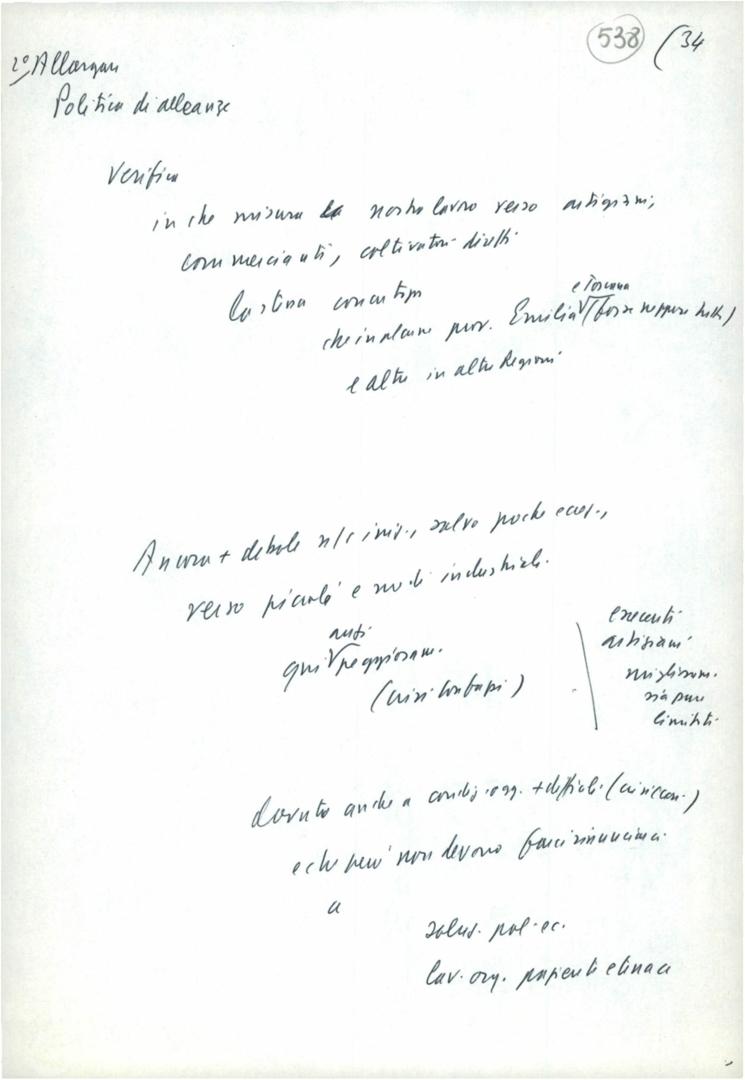 538 (34
2º) Allargare
Politica di alleanze
Verifica
in che misura la nostro lavoro verso artigiani,
commercianti, coltivatori diretti
che in alcune prov. Emilia (forse neppure tutte)
e Toscana
e altre in altre Regioni
Ancora + debole n/s iniz., salvo poche ecc.,
verso piccoli e medi industriali.
anzi
qui peggioram.
(crisi
esercenti
artigiani
miglioram.
sia pure
limitati
dovuto anche a condiz. ogg. + difficili (crisi econ.)
e che però non devono farci rinunciare
a
pol. ec.
lav. org. paziente e tenace